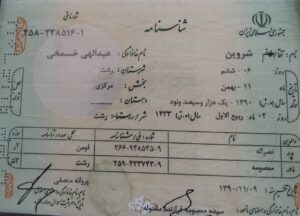 جمهوری اسلامی ایران
شناسنامه
شماره ملی
۲۵۸-۲۲۸۵۱۶-۱
نام: شروین
نام خانوادگی: عبدالهی خسمخی
۶ - ششم
شهرستان: رشت
۱۱ - بهمن
بخش: مرکزی
۱۳۹۰ - یک هزار و سیصد و نود
دهستان:
۲ - ماه ربیع الاول سال (ه.ق) ۱۴۳۳
شهر / روستا: رشت
نام
شماره ملی / ش شناسنامه
محل صدور شناسنامه
نصراله
۲۶۶-۹۴۸۵۳۵-۹
فومن
معصومه
۲۵۹-۴۳۳۷۴۳-۹
رشت
۱۳۹۰/۱۱/۰۹
سیده معصومه